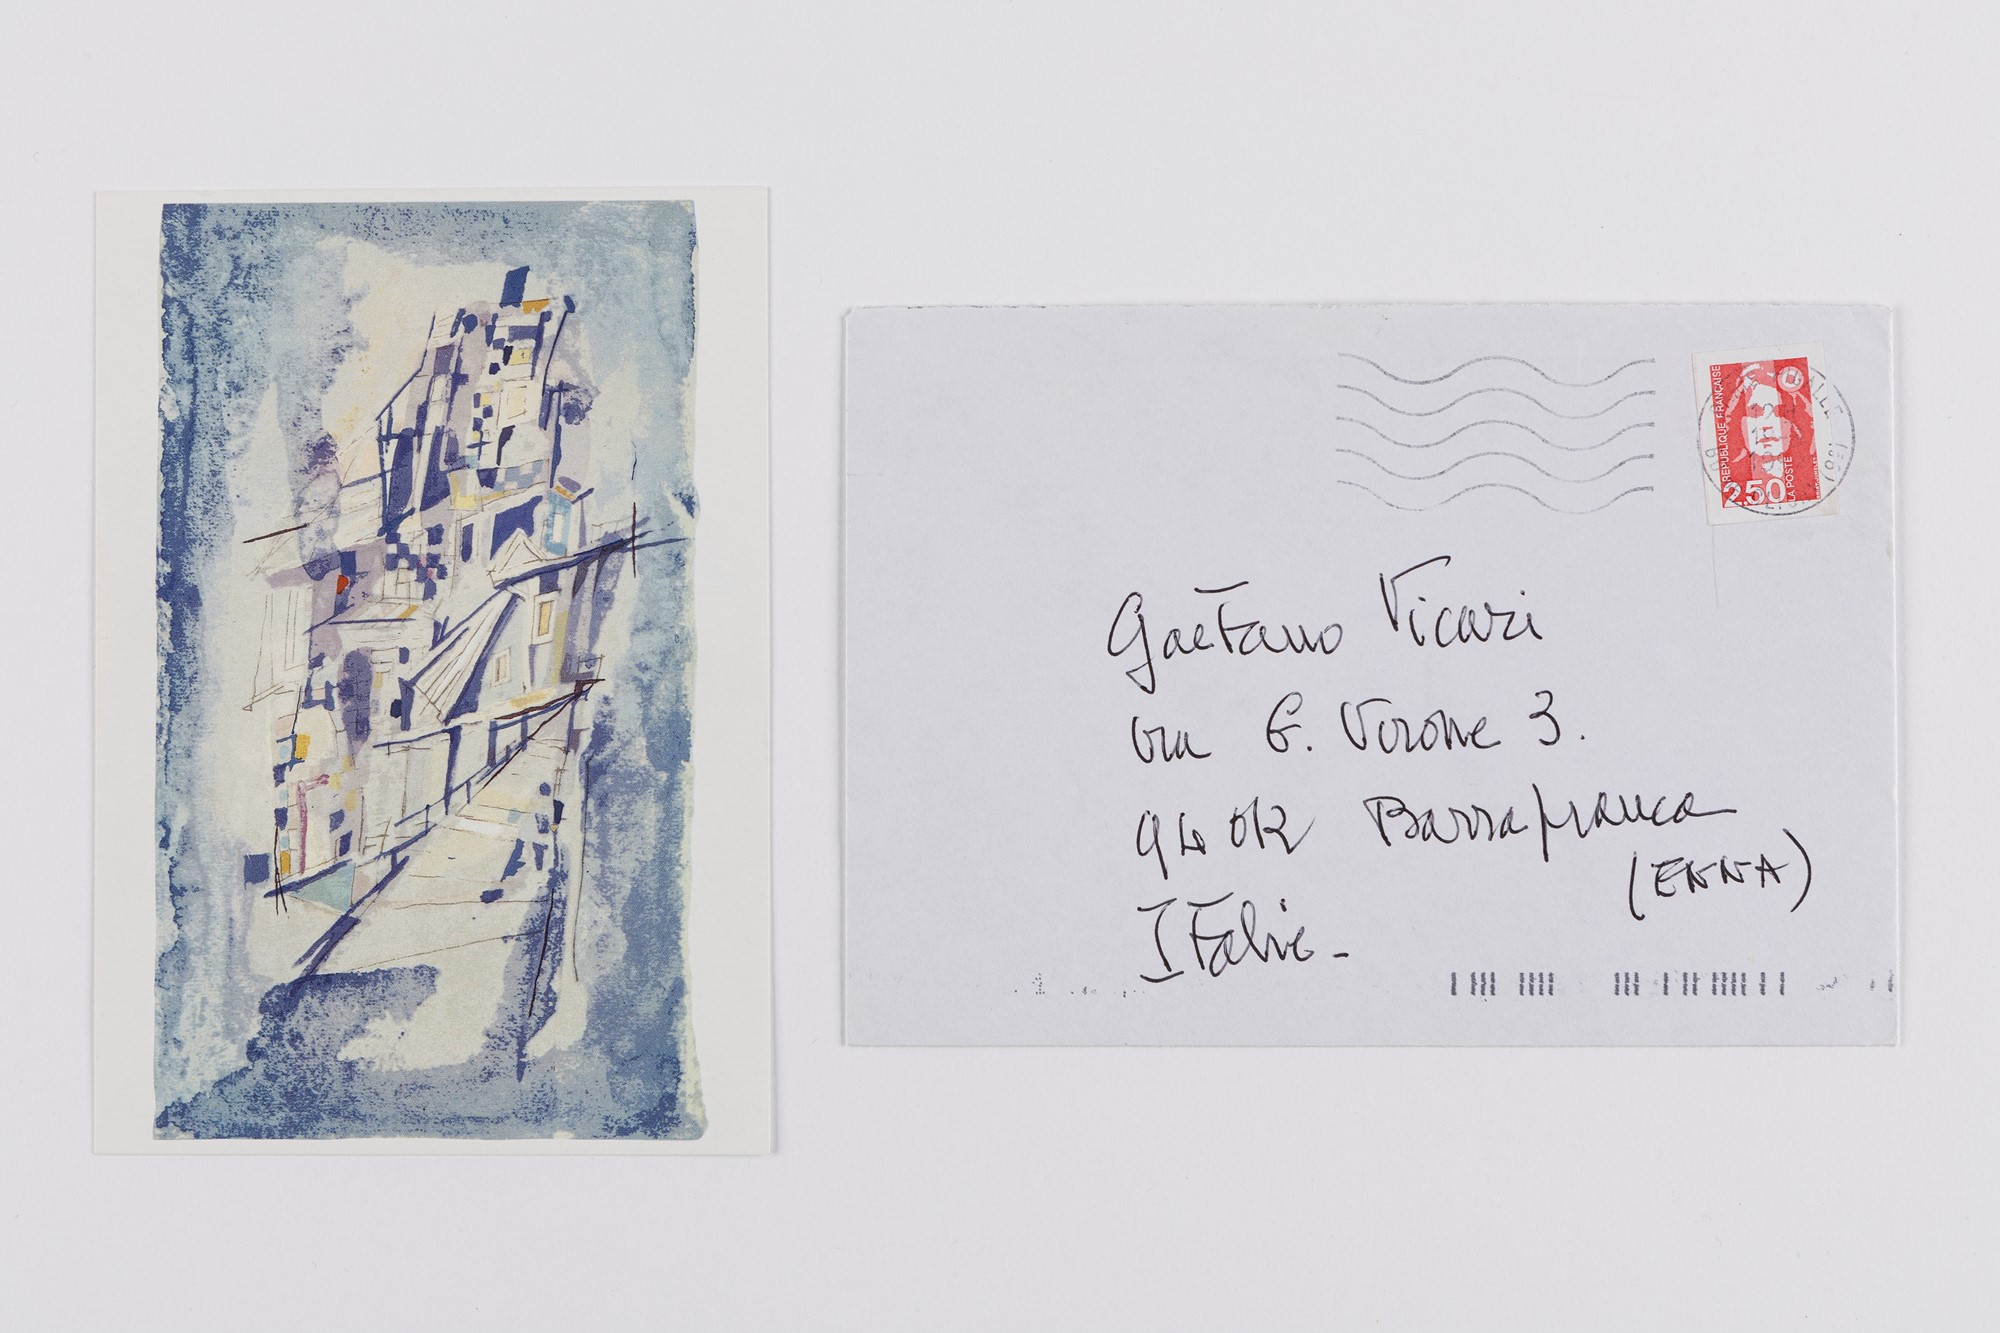 REPUBLIQUE FRANÇAISE
2,50
LA POSTE
Gaetano Vicari
via G. Verone 3.
94012 Barrafranca
(ENNA)
Italie -